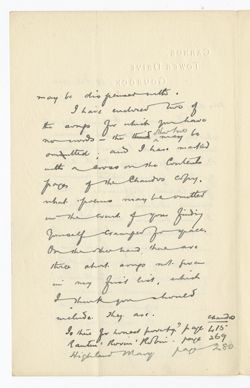 may be dispensed with.
I have enclosed two of
the songs for which you have
no words - the third other two may be
omitted; and I have marked
with a cross on the Contents
pages of the Chandos copy,
what poems may be omitted
in the event of your finding
yourself cramped for space.
On the other hand there are
three short songs not given
in my first list, which
I think you should
include. They are.
Chandos
Is there for honest poverty? page 415
Rantin' Rovin' Robin. page 269
Highland Mary page 230